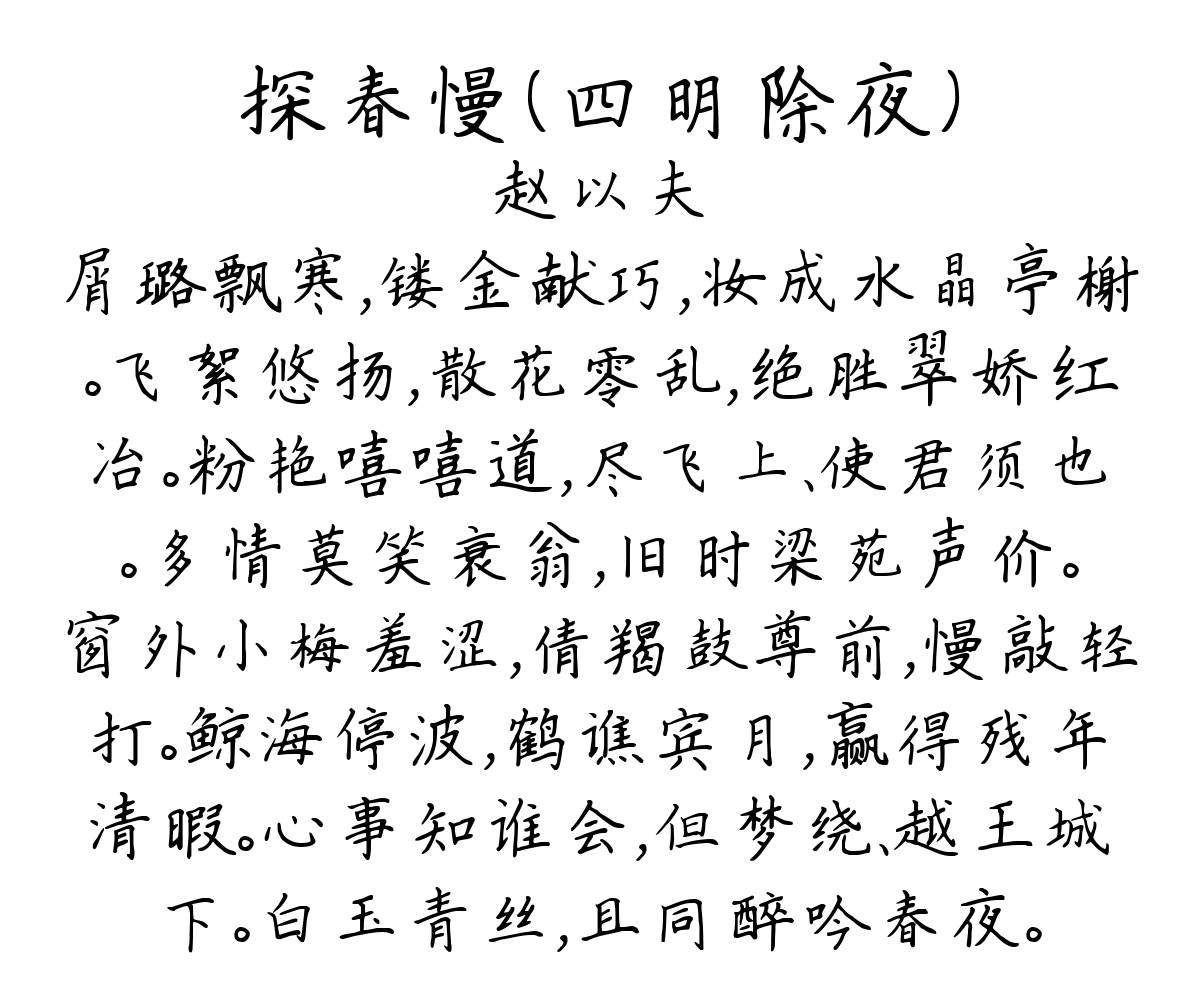 探春慢(四明除夜)
赵以夫
屑璐飘寒,镂金献巧,妆成水晶亭榭
。飞絮悠扬,散花零乱,绝胜翠娇红
冶。粉艳嘻嘻道,尽飞上、使君须也
。多情莫笑衰翁,旧时梁苑声价。
窗外小梅羞涩,倩羯鼓尊前,慢敲轻
打。鲸海停波,鹤谯宾月,赢得残年
清暇。心事知谁会,但梦绕、越王城
下。白玉青丝,且同醉吟春夜。